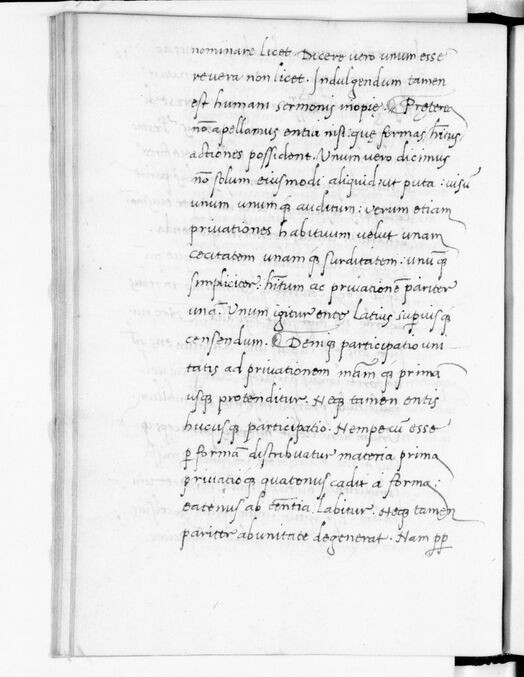 nominare licet. Dicere vero unum esse
re vera non licet. Indulgendum tamen
est humani sermonis inopię. Pręterea
nō apellamus entia nisi: quę formas, hītus,
actiones possident. Unum vero dicimus
nō solum eiusmodi aliquid: ut puta: visū
unum unumq; auditum: verum etiam
privationes habituum velut unam
cecitatem unamq; surditatem: unūq;
simpliciter: hītum ac privationē pariter
unā. Unum igitur ente latius superiusq;
censendum. Deniq; participatio uni
tatis ad privationem māmq; primā
usq; protenditur. Neq; tamen entis
hucusq; participatio. Nempe cū esse
p formā distribuatur materia prima
privatioq; quatenus cadit a forma:
eatenus ab entia labitur. Neq; tamen
pariter ab unitate degenerat. Nam pp